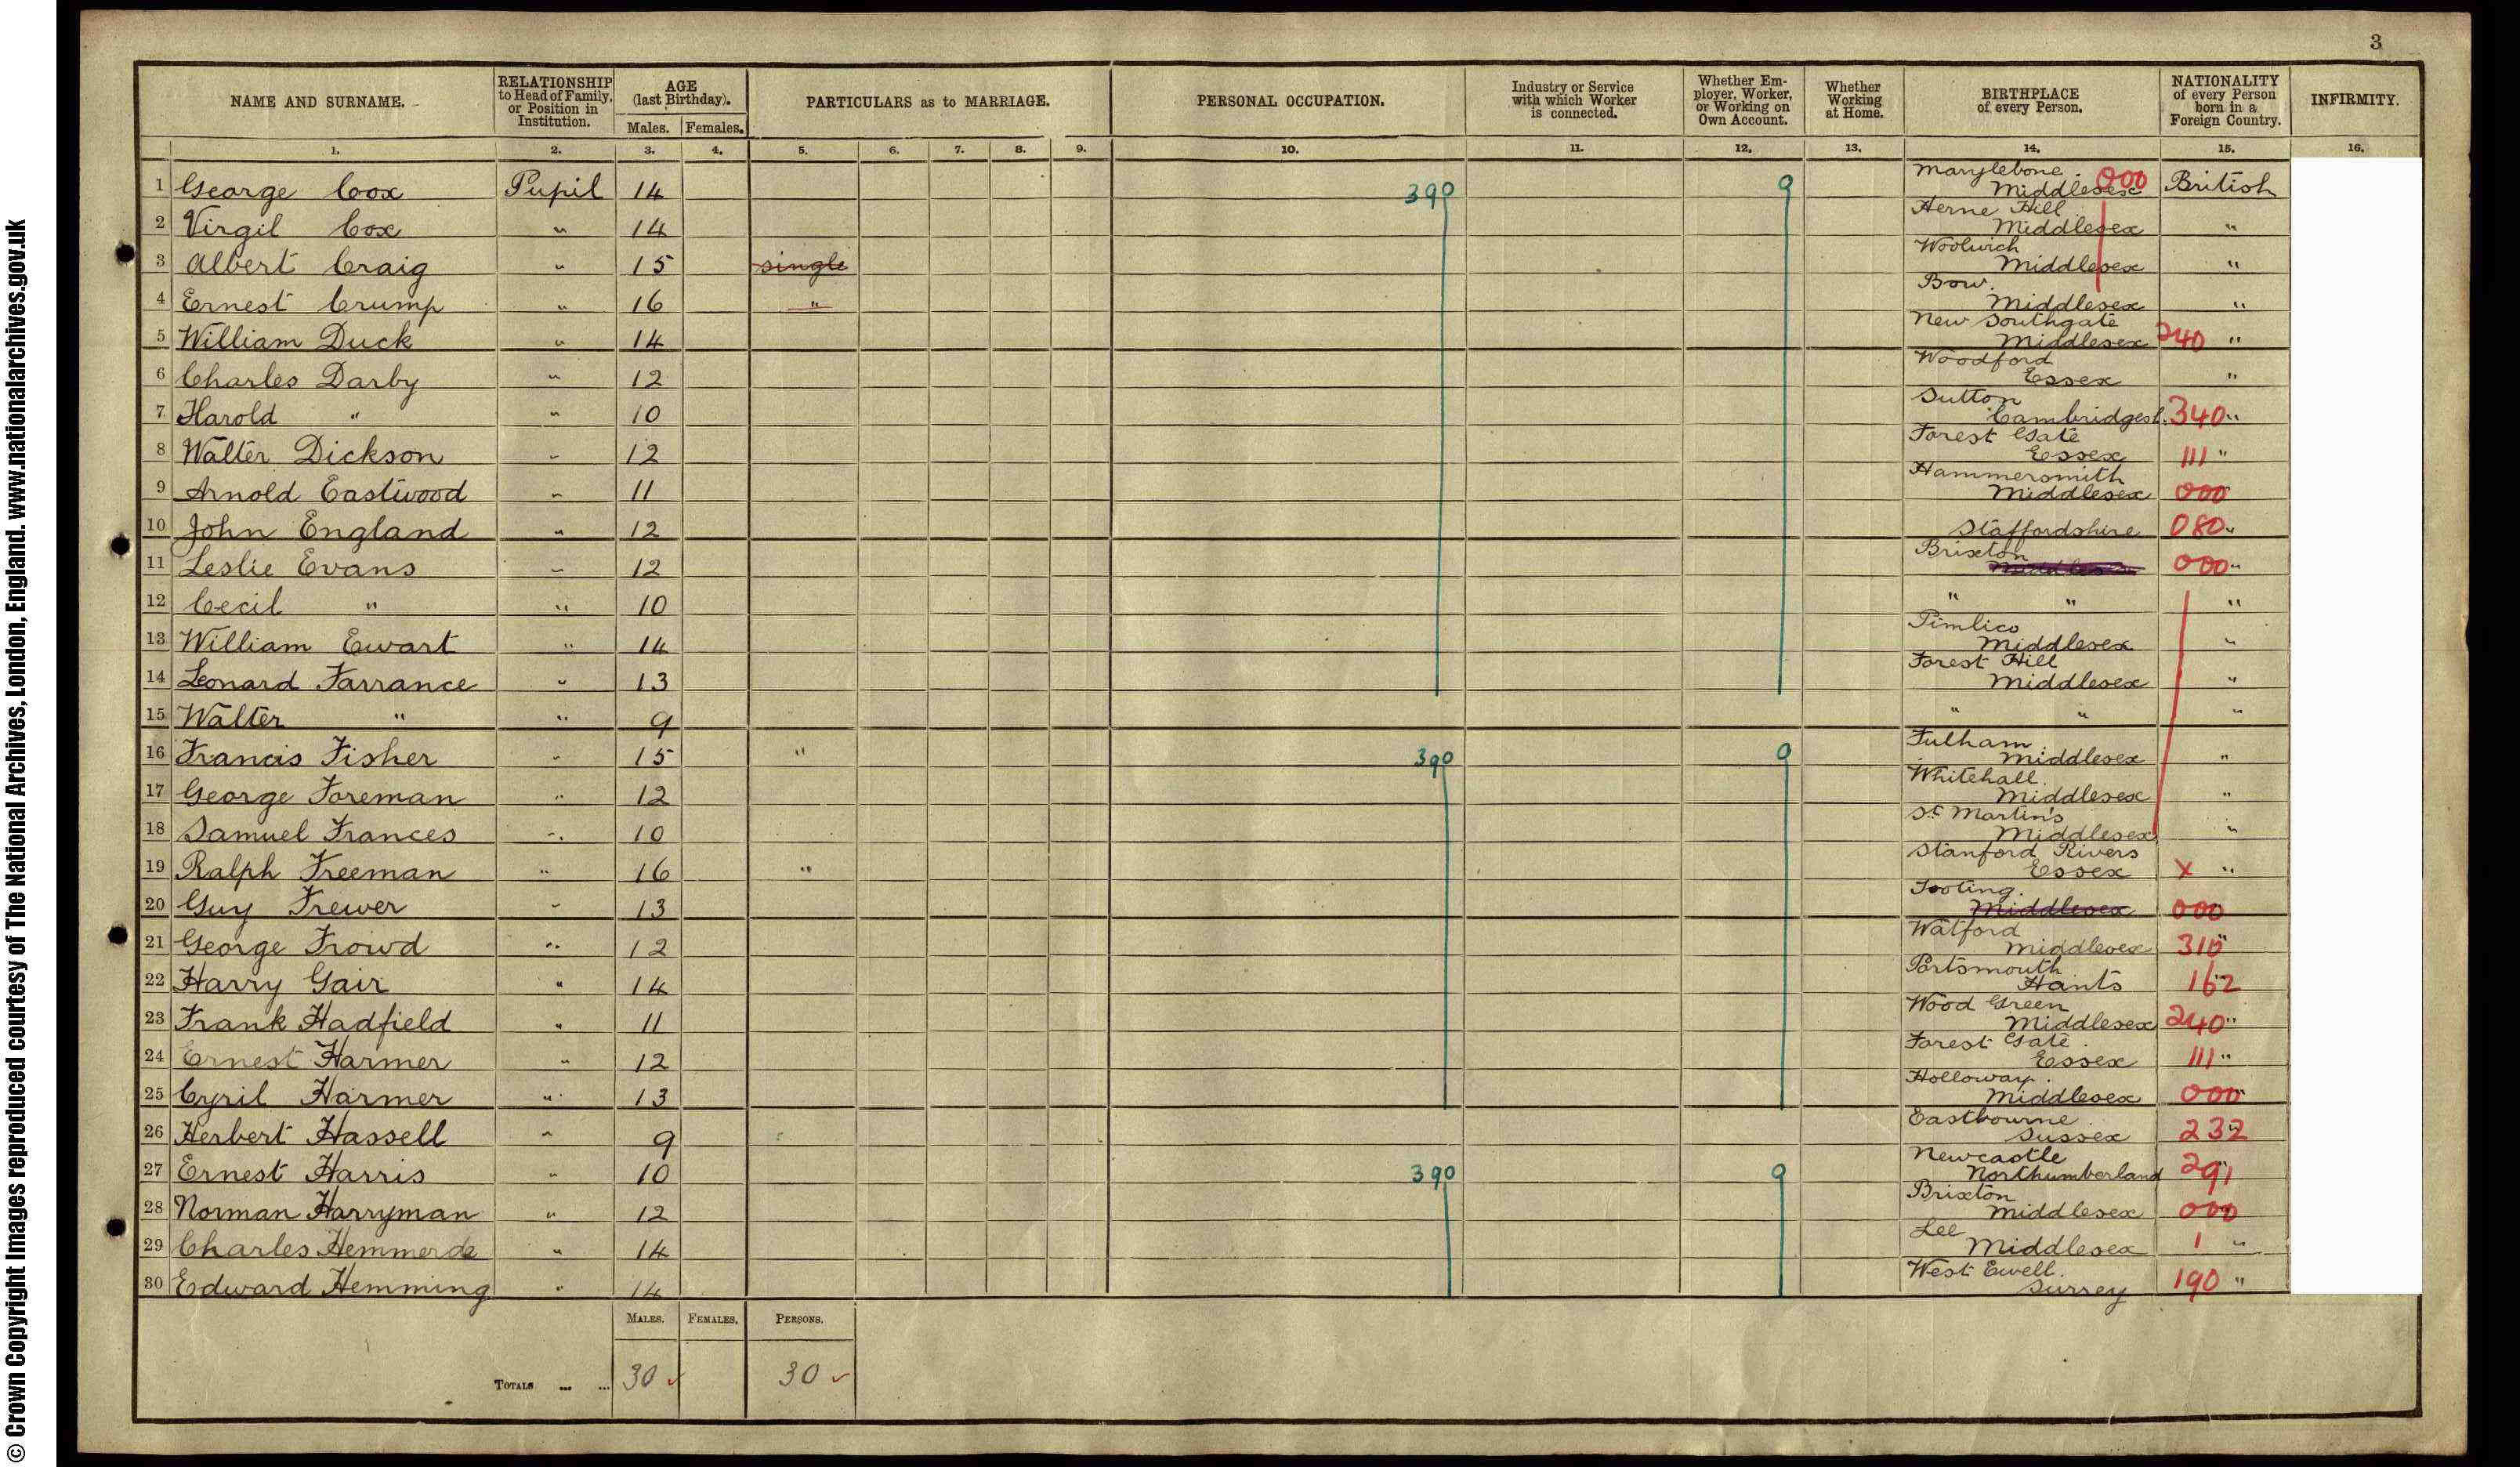 3
NAME AND SURNAME. RELATIONSHIP to Head of Family, or Position in Institution. AGE (last Birthday). PARTICULARS as to MARRIAGE. PERSONAL OCCUPATION. Industry or Service with which Worker is connected. Whether Employer, Worker, or Working on Own Account. Whether Working at Home. BIRTHPLACE of every Person. NATIONALITY of every Person born in a Foreign Country. INFIRMITY.
Males. Females.
1. 2. 3. 4. 5. 6. 7. 8. 9. 10. 11. 12. 13. 14. 15. 16.
1 George Cox Pupil 14 390 9 Marylebone. Middlesex 000 British
2 Virgil Cox " 14 Herne Hill Middlesex "
3 Albert Craig " 15 single Woolwich Middlesex "
4 Ernest Crump " 16 " Bow. Middlesex "
5 William Duck " 14 New Southgate Middlesex 240 "
6 Charles Darby " 12 Woodford Essex "
7 Harold " " 10 Sutton Cambridgesh. 340 "
8 Walter Dickson " 12 Forest Gate Essex 111 "
9 Arnold Eastwood " 11 Hammersmith Middlesex 000
10 John England " 12 Staffordshire 080 "
11 Leslie Evans " 12 Brixton Middlesex 000 "
12 Cecil " " 10 " " "
13 William Ewart " 14 Pimlico Middlesex "
14 Leonard Farrance " 13 Forest Hill Middlesex "
15 Walter " " 9 " " "
16 Francis Fisher " 15 " 390 9 Fulham. Middlesex "
17 George Foreman " 12 Whitehall. Middlesex "
18 Samuel Frances " 10 St Martin's Middlesex "
19 Ralph Freeman " 16 " Stanford Rivers Essex X "
20 Guy Frewer " 13 Tooting. Middlesex 000
21 George Frowd " 12 Watford Middlesex 310 "
22 Harry Gair " 14 Portsmouth. Hants 162
23 Frank Hadfield " 11 Wood Green Middlesex 240 "
24 Ernest Harmer " 12 Forest Gate. Essex 111 "
25 Cyril Harmer " 13 Holloway. Middlesex 000
26 Herbert Hassell " 9 Eastbourne. Sussex 232
27 Ernest Harris " 10 390 9 Newcastle Northumberland 291
28 Norman Harryman " 12 Brixton Middlesex 000
29 Charles Hemmerde " 14 Lee Middlesex 1 "
30 Edward Hemming " 14 West Ewell. Surrey 190 "
MALES. FEMALES. PERSONS.
TOTALS ... ... 30 30
© Crown Copyright Images reproduced courtesy of The National Archives, London, England. www.nationalarchives.gov.uk